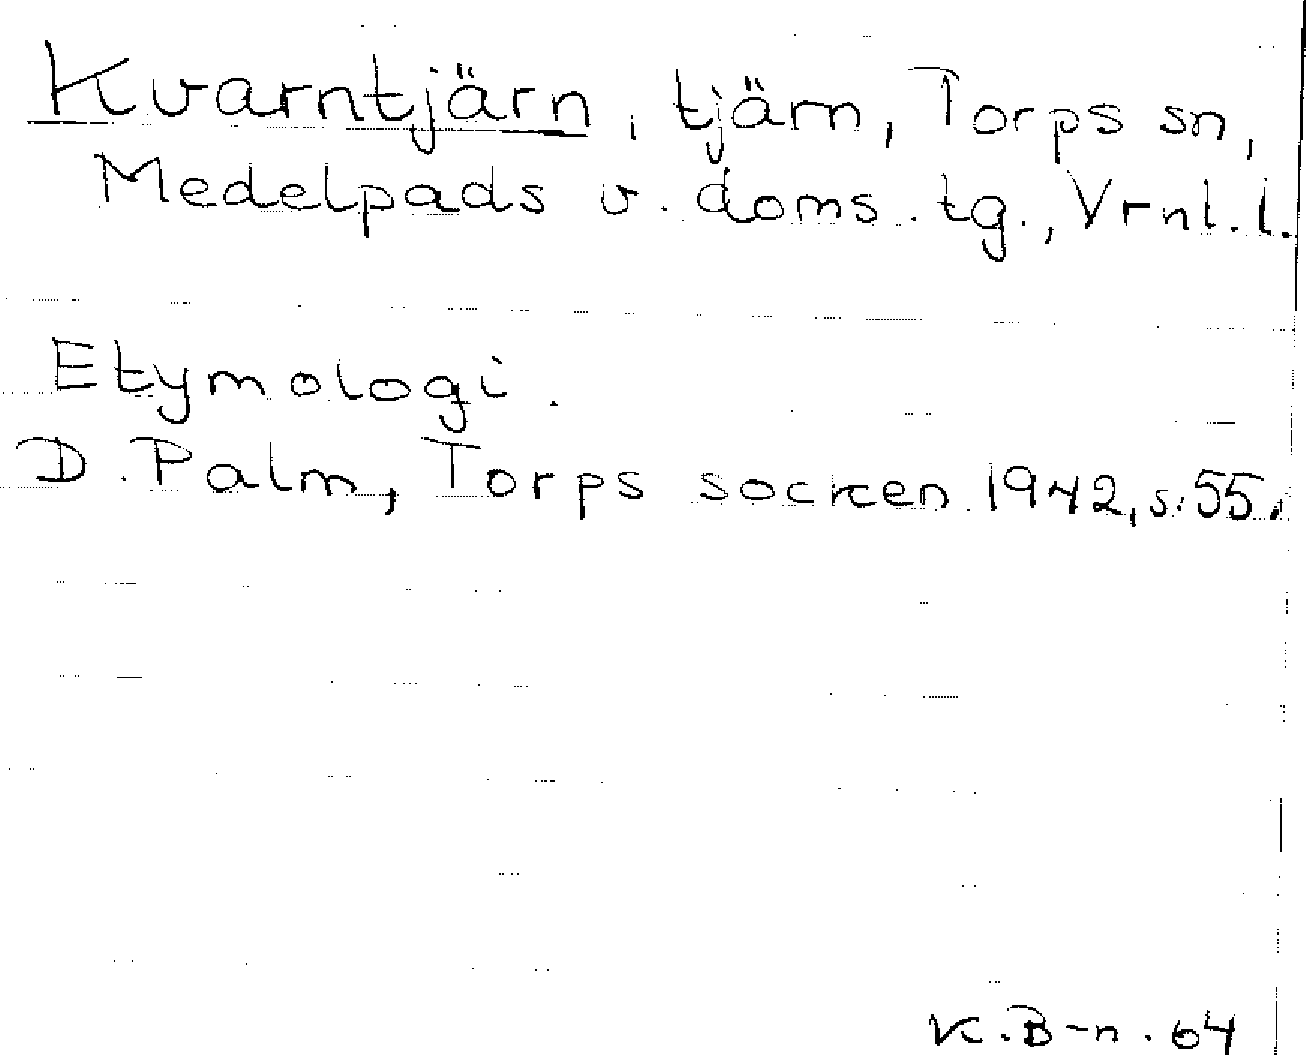 Kvarntjärn, tjärn, Torps sn,
Medelpads v. doms. tg., Vrnl. l.
Etymologi.
D. Palm, Torps socken 1942, s. 55.
K. B-n. 64